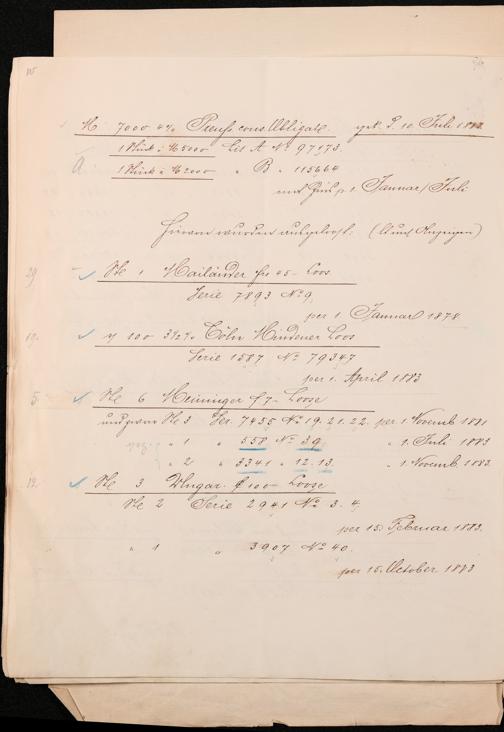 M 7000 4% Preuß. cons. Obligat. gek. p. 10. Juli 1883.
1 Stück à M 5000 Lit. A No 97173.
A 1 Stück à M 2000 " B " 115664
mit Zins p. 1 Januar/Juli
Hievon wurden ausgeloost:
29 Stk 1 Mailänder frs 45 – Loos
Serie 7893 No 9,
per 1. Januar 1878.
19. 100 3½% Cöln Mindener Loos
Serie 1587 No 79347
per 1. April 1883
5 Stk 6 Meininger f 7 – Loose
und zwar Stk 3 Ser. 7455 No 19. 21. 22. per 1 Novemb. 1881
" 1 " 558 No 39 " 1. Juli 1883
" 2 " 3341 " 12. 13. " 1. Novemb. 1883.
12. Stk 3 Ungar. f 100 – Loose
Stk 2 Serie 2941 No 3. 4.
per 15. Februar 1883.
" 1 " 3907 No 40.
per 15. October 1883